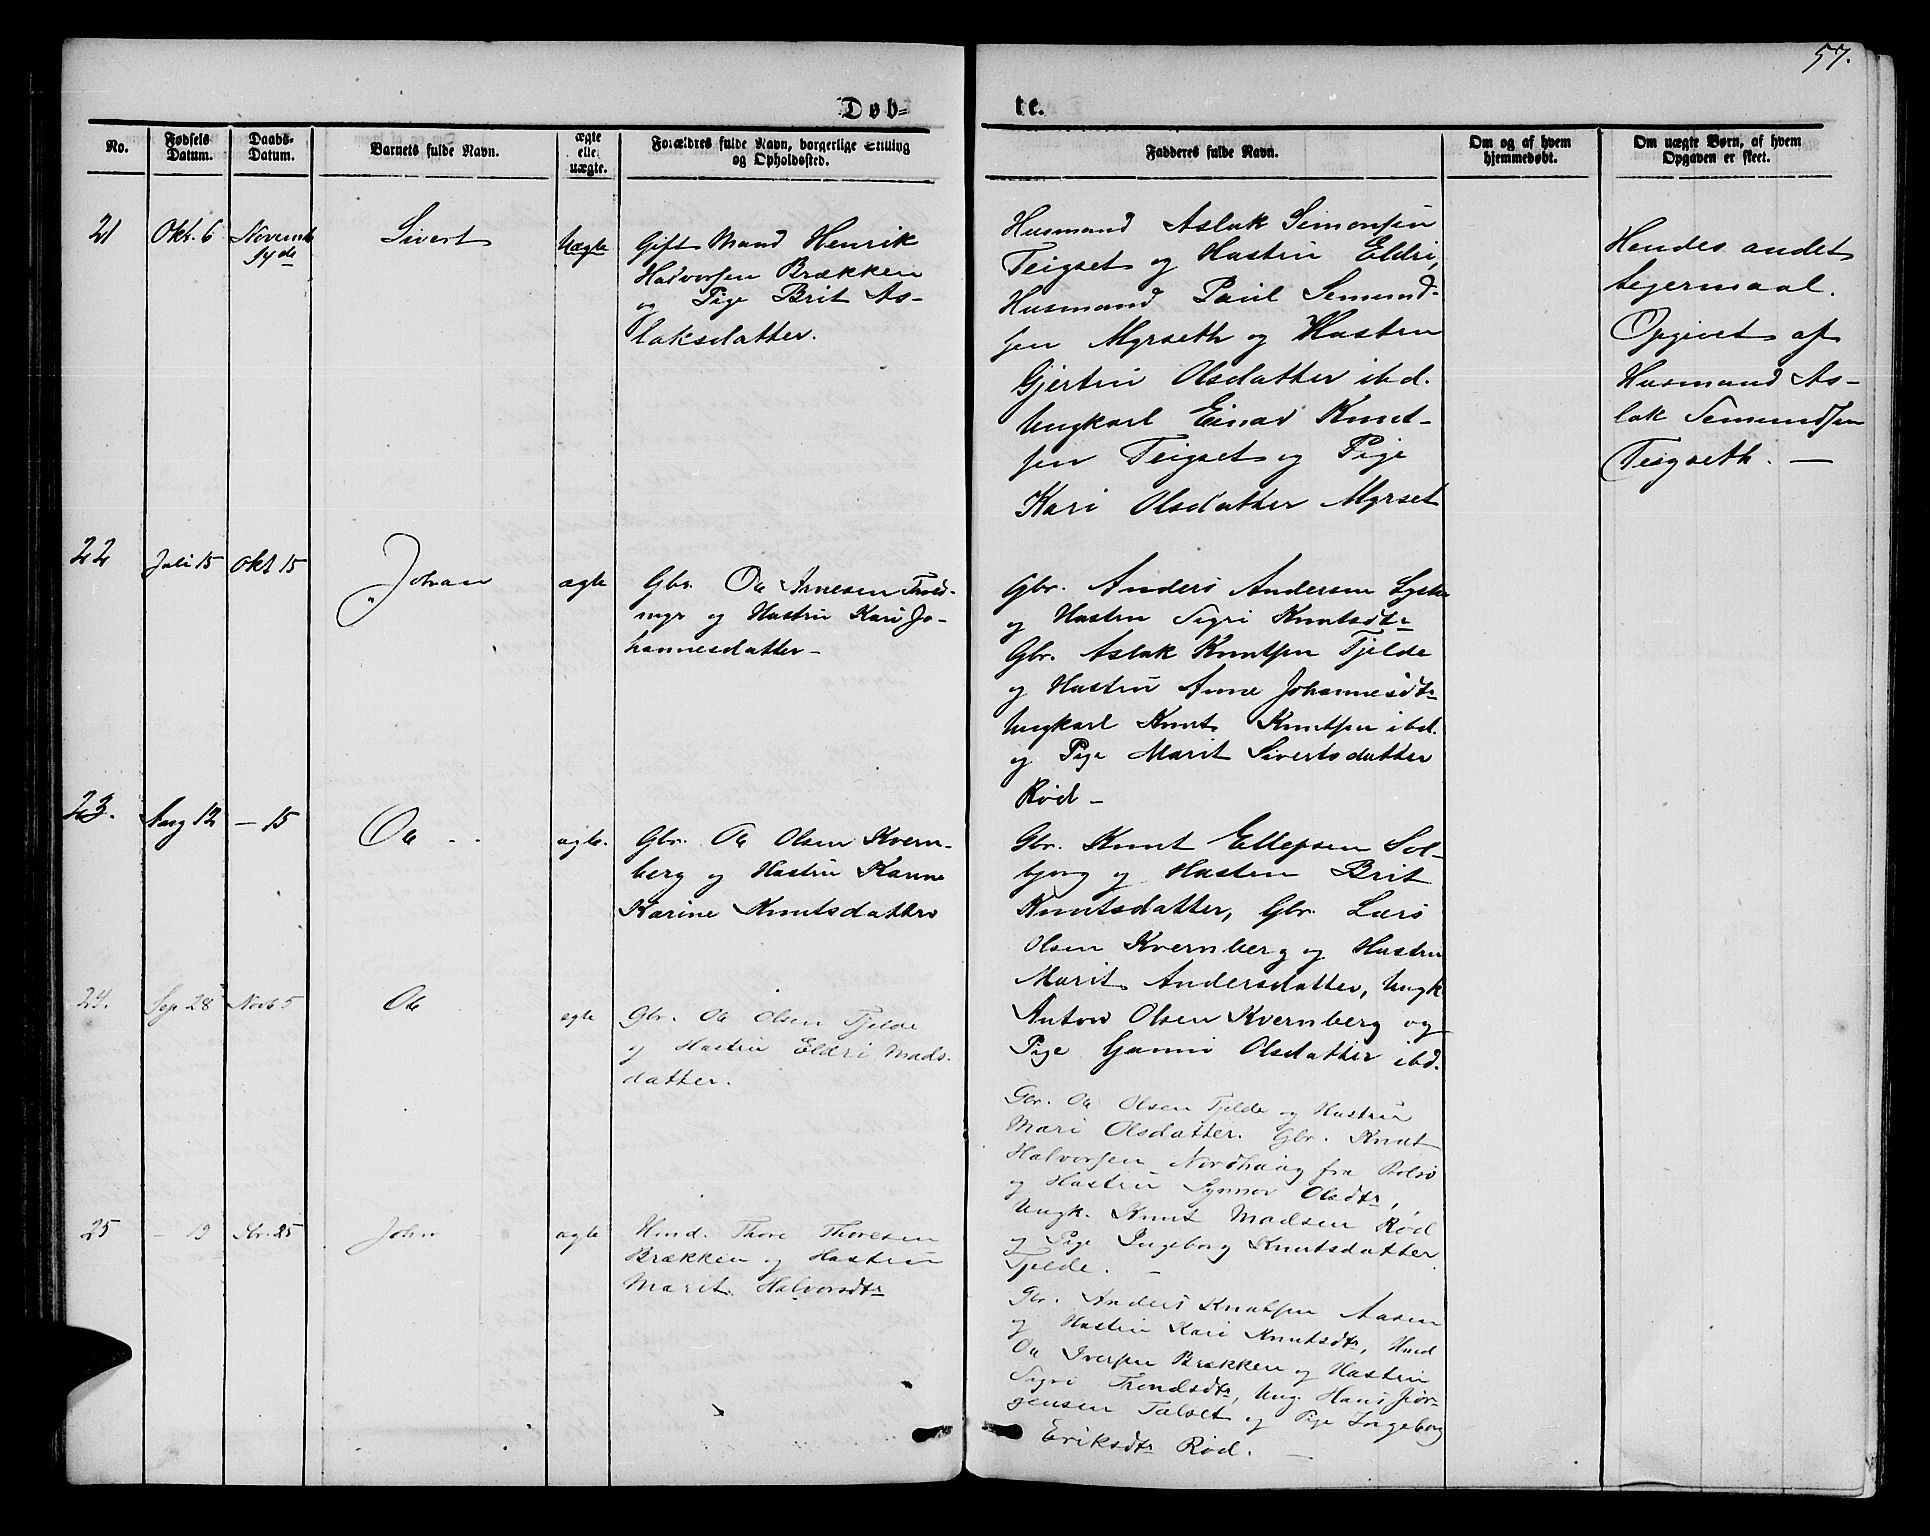 57.
Døb-
te.
No.
Fødsels
Datum.
Daabs-
Datum.
Barnets fulde Navn.
ægte
elle
uægte.
Forældres fulde Navn, borgerlige Stilling
og Opholdssted.
Fadderes fulde Navn.
Om og af hvem
hjemmedøbt.
Om uægte Børn, af hvem
Opgaven er skeet.
21
Okt. 6
Novemb
14de
Sivert
Uægte
Gift Mand Henrik
Halvorsen Brækken
og Pige Brit As-
laksdatter.
Husmand Aslak Simonsen
Teigset og Hustru Eldri,
Husmand Paul Semund-
sen Myrseth og Hustru
Gjertru Olsdatter ibd.
Ungkarl Einar Knud-
sen Teigset og Pige
Kari Olsdatter Myrset
Hendes andet
Leiermaal.
Opgivet af
Husmand As-
lak Semundsen
Teigseth. —
22
Juli 15
Okt 15
Johan
ægte
Gbr. Ole Arnesen Trold-
myr og Hustru Kari Jo-
hannesdatter -
Gbr. Anders Andersen
og Hustru Sigri Knutsdtr
Gbr. Aslak Knutsen Tjelde
og Hustru Anne Johannesdtr
Ungkarl Knut Knutsen ibd.
og Pige Marit Sivertsdatter
Rød -
23.
Aug 12
— 15
Ole
ægte.
Gbr. Ole Olsen Kvern-
berg og Hustru Karine Knutsdatter
Gbr. Knut Ellefsen Sol-
bjørg og Hustru Brit
Knutsdatter, Gbr. Lars
Olsen Kvernberg og Hustru
Marit Andersdatter, Ungk
Anton Olsen Kvernberg og
Pige Gunni Olsdatter ibd.
24.
Sep 28
Novb 5
Ole
egte
Gbr. Ole Olsen Tjelde
og Hustru Eldri Mads-
datter.
Gbr. Ole Olsen Tjelde og Hustru
Mari Olsdatter. Gbr. Knut
Halvorsen Nordhaug fra Bolsø
og Hustru Synnøv Olsdtr,
Ungk. Knut Madsen Rød
og Pige Ingeborg Knutsdatter
Tjelde. —
25
— 19
25
John
ægte
Hmd. Thore Thoresen
Brækken og Hustru
Marit Halvorsdtr
Gbr. Anders Knutsen Aasen
og Hustru Kari Knutsdtr, Hmd
Ole Iversen Brækken og Hustru
Sigri Trondsdtr, Ung. Hans Jør-
gensen Talset og Pige Ingeborg
Eriksdtr Rød. —